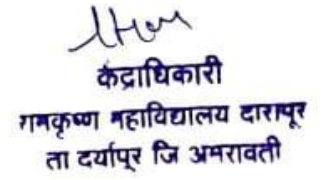 केंद्राधिकारी
रामकृष्ण महाविद्यालय दारापूर
ता दर्यापूर जि अमरावती